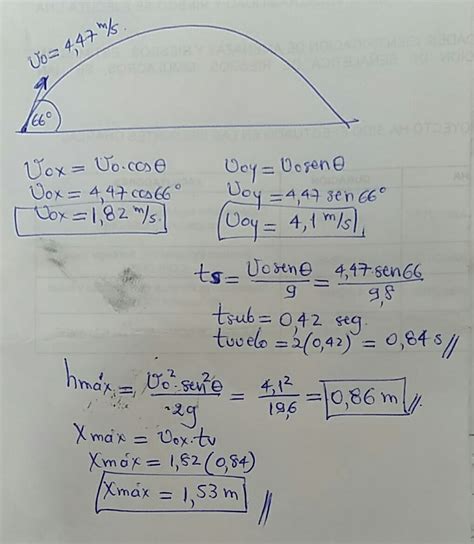 υo = 4,47 m/s
66°
υox = υo·cosθ
υox = 4,47 cos66°
υox = 1,82 m/s
υoy = υo senθ
υoy = 4,47 sen 66°
υoy = 4,1 m/s
ts = υo senθ / g = 4,47·sen66 / 9,8
tsub = 0,42 seg.
tvuelo = 2(0,42) = 0,84 s //
hmáx = υo²·sen²θ / 2g = 4,1² / 19,6 = 0,86 m //
Xmáx = υox·tv
Xmáx = 1,82 (0,84)
Xmáx = 1,53 m //